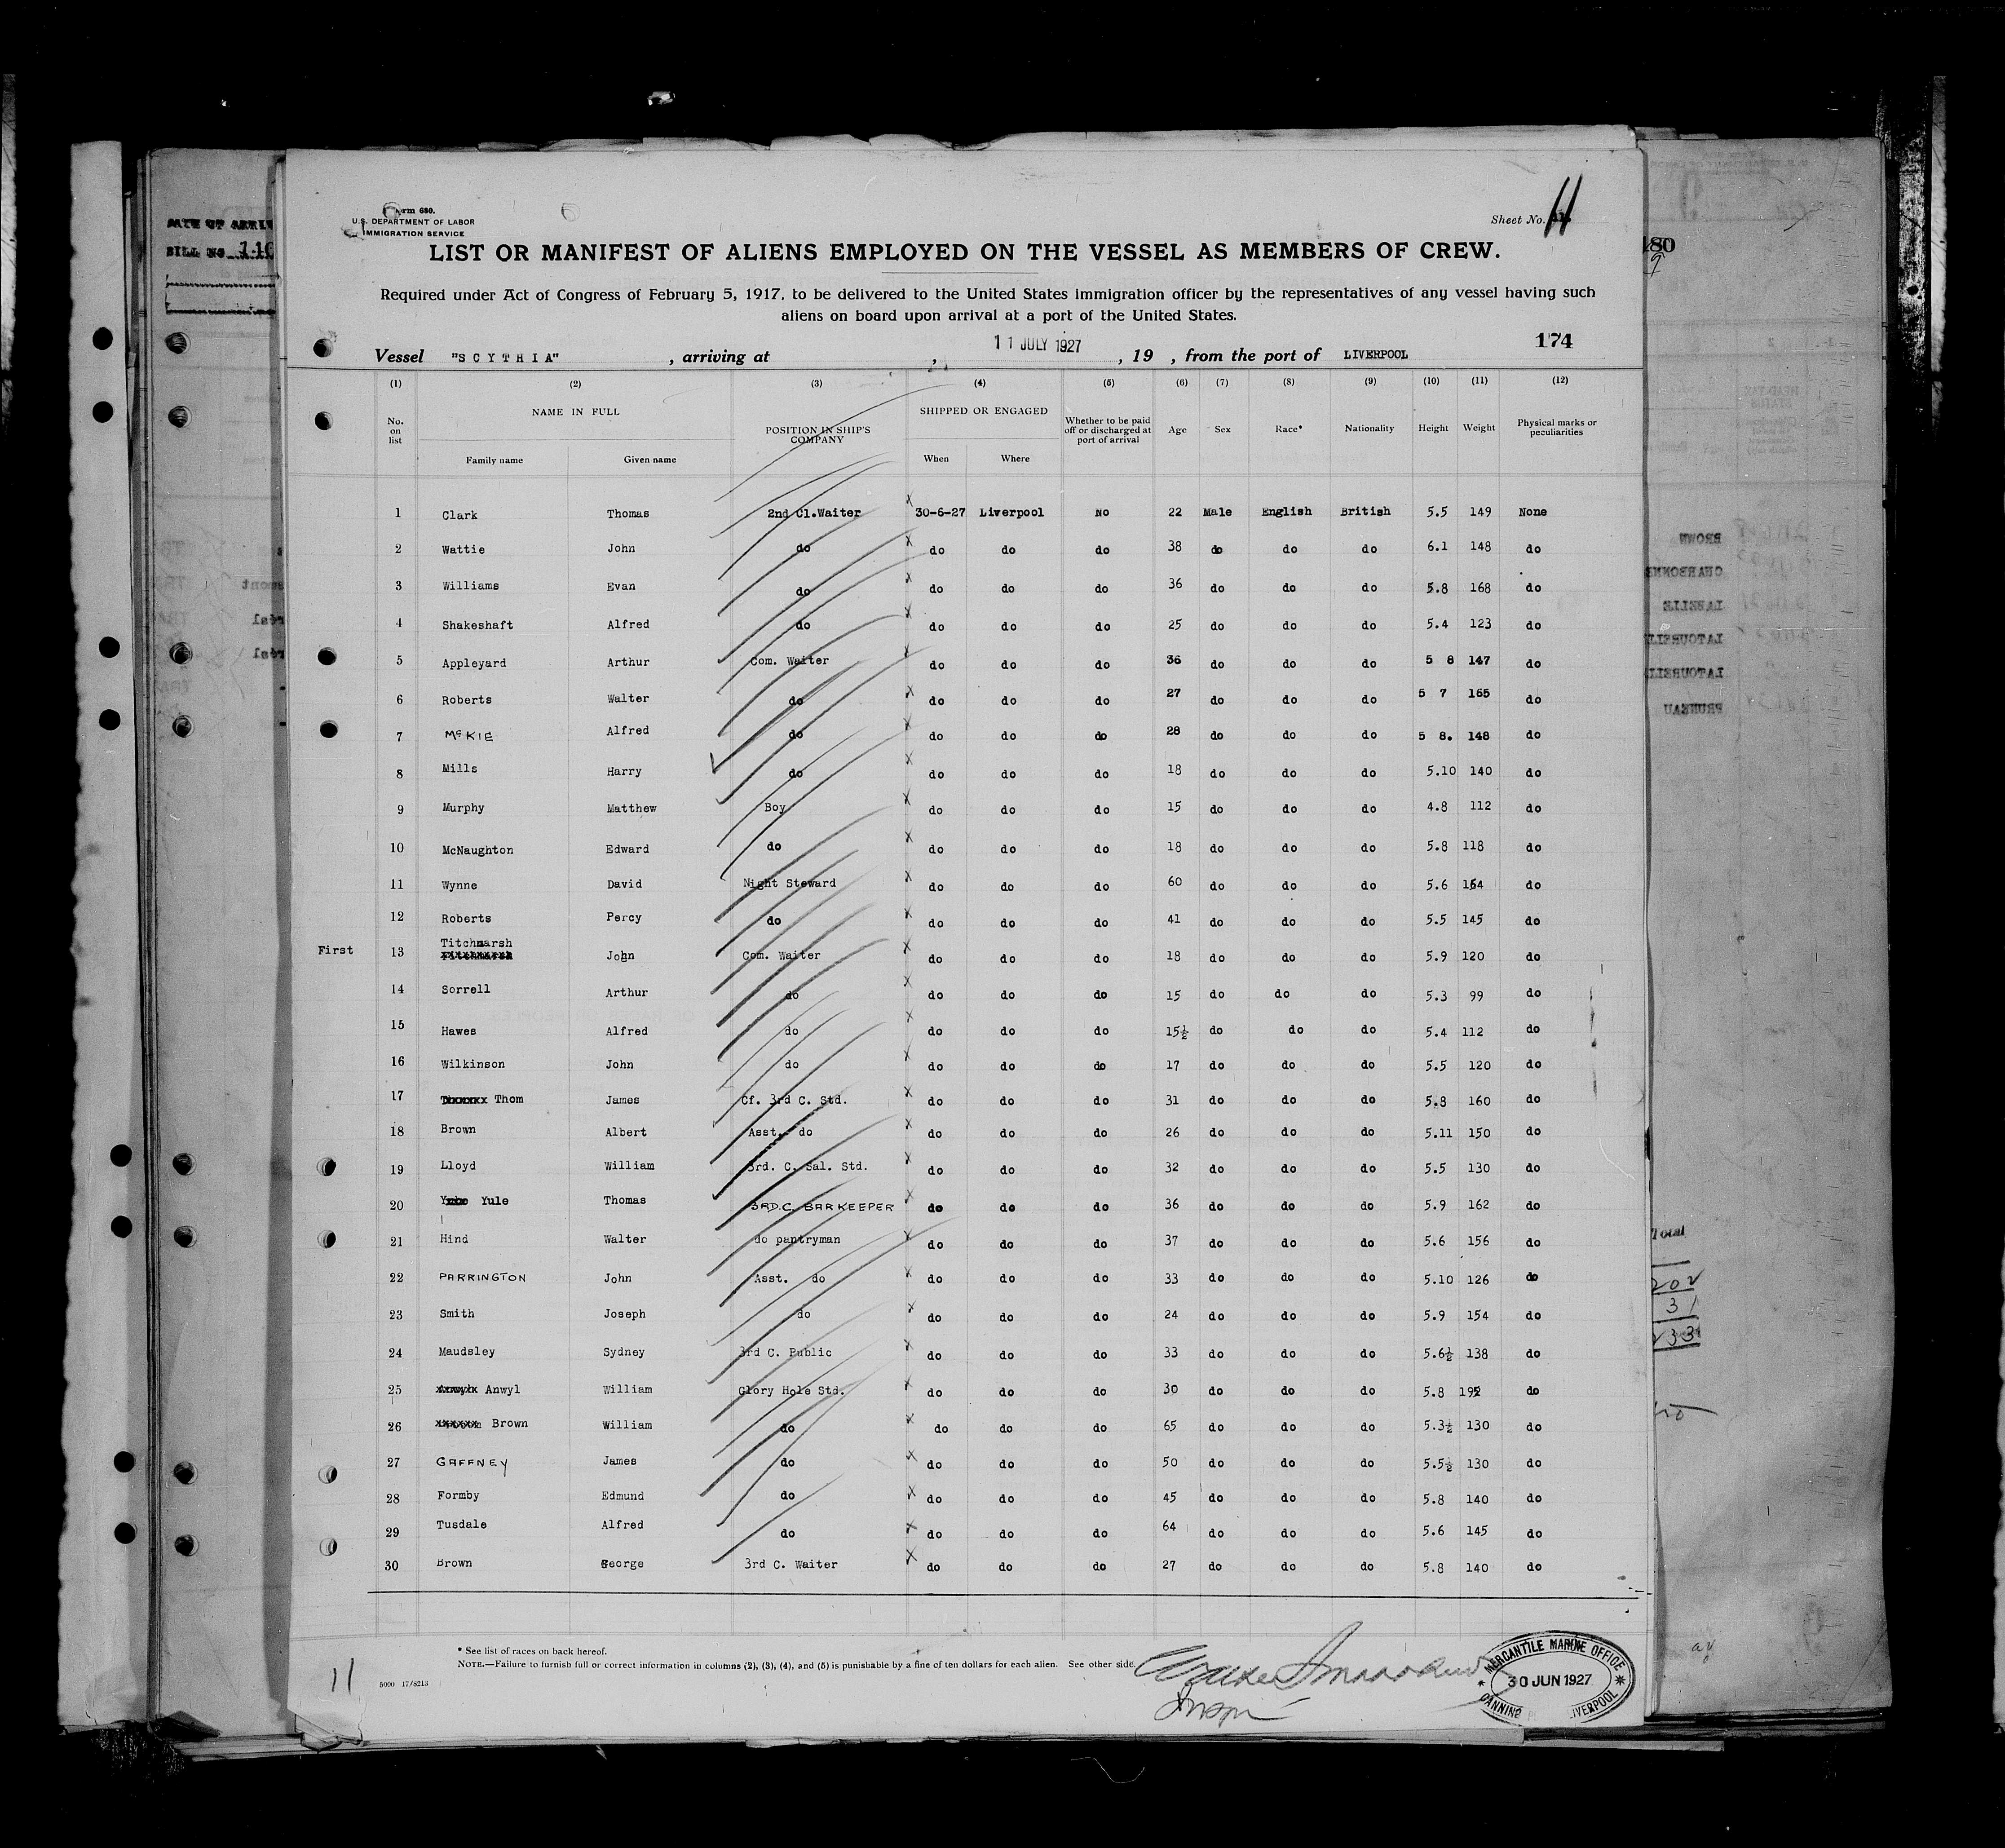 Form 680.
U.S. DEPARTMENT OF LABOR
IMMIGRATION SERVICE
Sheet No. 11
LIST OR MANIFEST OF ALIENS EMPLOYED ON THE VESSEL AS MEMBERS OF CREW.
Required under Act of Congress of February 5, 1917, to be delivered to the United States immigration officer by the representatives of any vessel having such
aliens on board upon arrival at a port of the United States.
174
Vessel "SCYTHIA" , arriving at , 11 JULY 1927 , 19 , from the port of LIVERPOOL
(1) (2) (3) (4) (5) (6) (7) (8) (9) (10) (11) (12)
No. on list NAME IN FULL Family name Given name POSITION IN SHIP'S COMPANY SHIPPED OR ENGAGED When Where Whether to be paid off or discharged at port of arrival Age Sex Race* Nationality Height Weight Physical marks or peculiarities
1 Clark Thomas 2nd Cl.Waiter 30-6-27 Liverpool No 22 Male English British 5.5 149 None
2 Wattie John do do do do 38 do do do 6.1 148 do
3 Williams Evan do do do do 36 do do do 5.8 168 do
4 Shakeshaft Alfred do do do do 25 do do do 5.4 123 do
5 Appleyard Arthur Com. Waiter do do do 36 do do do 5 8 147 do
6 Roberts Walter do do do do 27 do do do 5 7 165 do
7 McKIE Alfred do do do do 28 do do do 5 8. 148 do
8 Mills Harry do do do do 18 do do do 5.10 140 do
9 Murphy Matthew Boy do do do 15 do do do 4.8 112 do
10 McNaughton Edward do do do do 18 do do do 5.8 118 do
11 Wynne David Night Steward do do do 60 do do do 5.6 164 do
12 Roberts Percy do do do do 41 do do do 5.5 145 do
First 13 Titchmarsh John Com. Waiter do do do 18 do do do 5.9 120 do
14 Sorrell Arthur do do do do 15 do do do 5.3 99 do
15 Hawes Alfred do do do do 15½ do do do 5.4 112 do
16 Wilkinson John do do do do 17 do do do 5.5 120 do
17 Thom James Cf. 3rd C. Std. do do do 31 do do do 5.8 160 do
18 Brown Albert Asst. do do do do 26 do do do 5.11 150 do
19 Lloyd William 3rd. C. Sal. Std. do do do 32 do do do 5.5 130 do
20 Yule Thomas 3RD.C. BARKEEPER do do do 36 do do do 5.9 162 do
21 Hind Walter do pantryman do do do 37 do do do 5.6 156 do
22 PARRINGTON John Asst. do do do do 33 do do do 5.10 126 do
23 Smith Joseph do do do do 24 do do do 5.9 154 do
24 Maudsley Sydney 3rd C. Public do do do 33 do do do 5.6½ 138 do
25 Anwyl William Glory Hole Std. do do do 30 do do do 5.8 192 do
26 Brown William do do do do 65 do do do 5.3½ 130 do
27 GAFFNEY James do do do do 50 do do do 5.5½ 130 do
28 Formby Edmund do do do do 45 do do do 5.8 140 do
29 Tusdale Alfred do do do do 64 do do do 5.6 145 do
30 Brown George 3rd C. Waiter do do do 27 do do do 5.8 140 do
* See list of races on back hereof.
NOTE.—Failure to furnish full or correct information in columns (2), (3), (4), and (5) is punishable by a fine of ten dollars for each alien. See other side.
5000 17/8213
11
MERCANTILE MARINE OFFICE
30 JUN 1927
CANNING LIVERPOOL
BILL NO
BROWN
LABELLE
PRUNEAU
Total
202
31
233